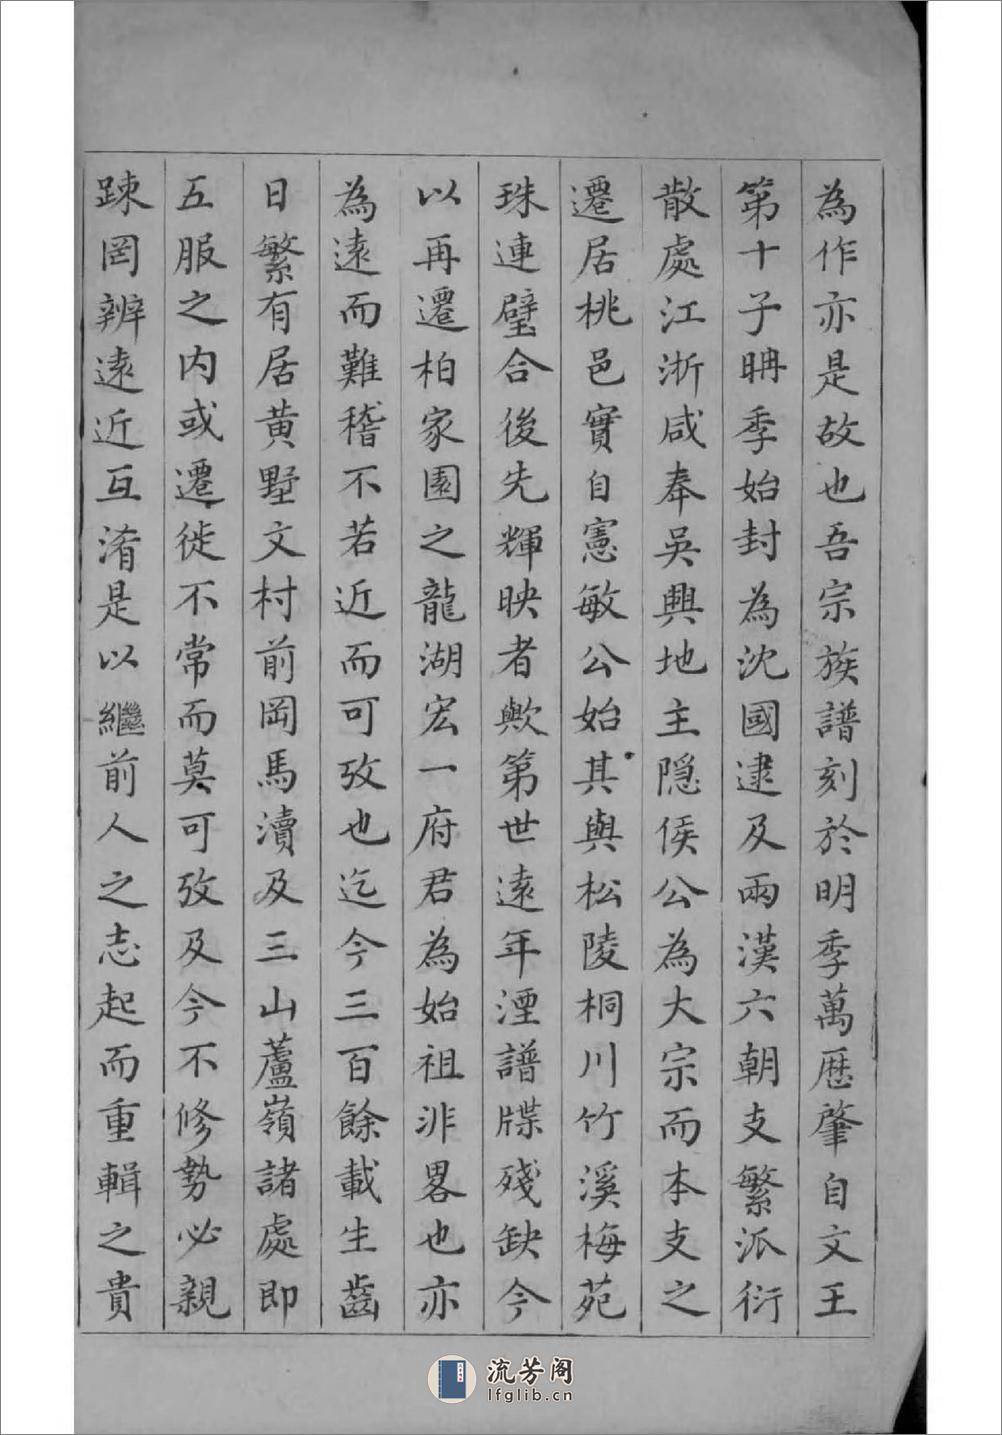 為作亦是故也吾宗族譜刻於明季萬厯肇自文王
第十子聃季始封為沈國逮及兩漢六朝支繁派衍
散處江浙咸奉吳興地主隐侯公為大宗而本支之
遷居桃邑實自憲敏公始其與松陵桐川竹溪梅苑
珠連璧合後先輝映者歟第世遠年湮譜牒殘缺今
以再遷柏家園之龍湖宏一府君為始祖非畧也亦
為遠而難稽不若近而可攷也迄今三百餘載生齒
日繁有居黄墅文村前岡馬瀆及三山蘆嶺諸處即
五服之内或遷徙不常而莫可攷及今不修勢必親
踈罔辨遠近互淆是以繼前人之志起而重輯之貴
流芳阁
lfglib.cn